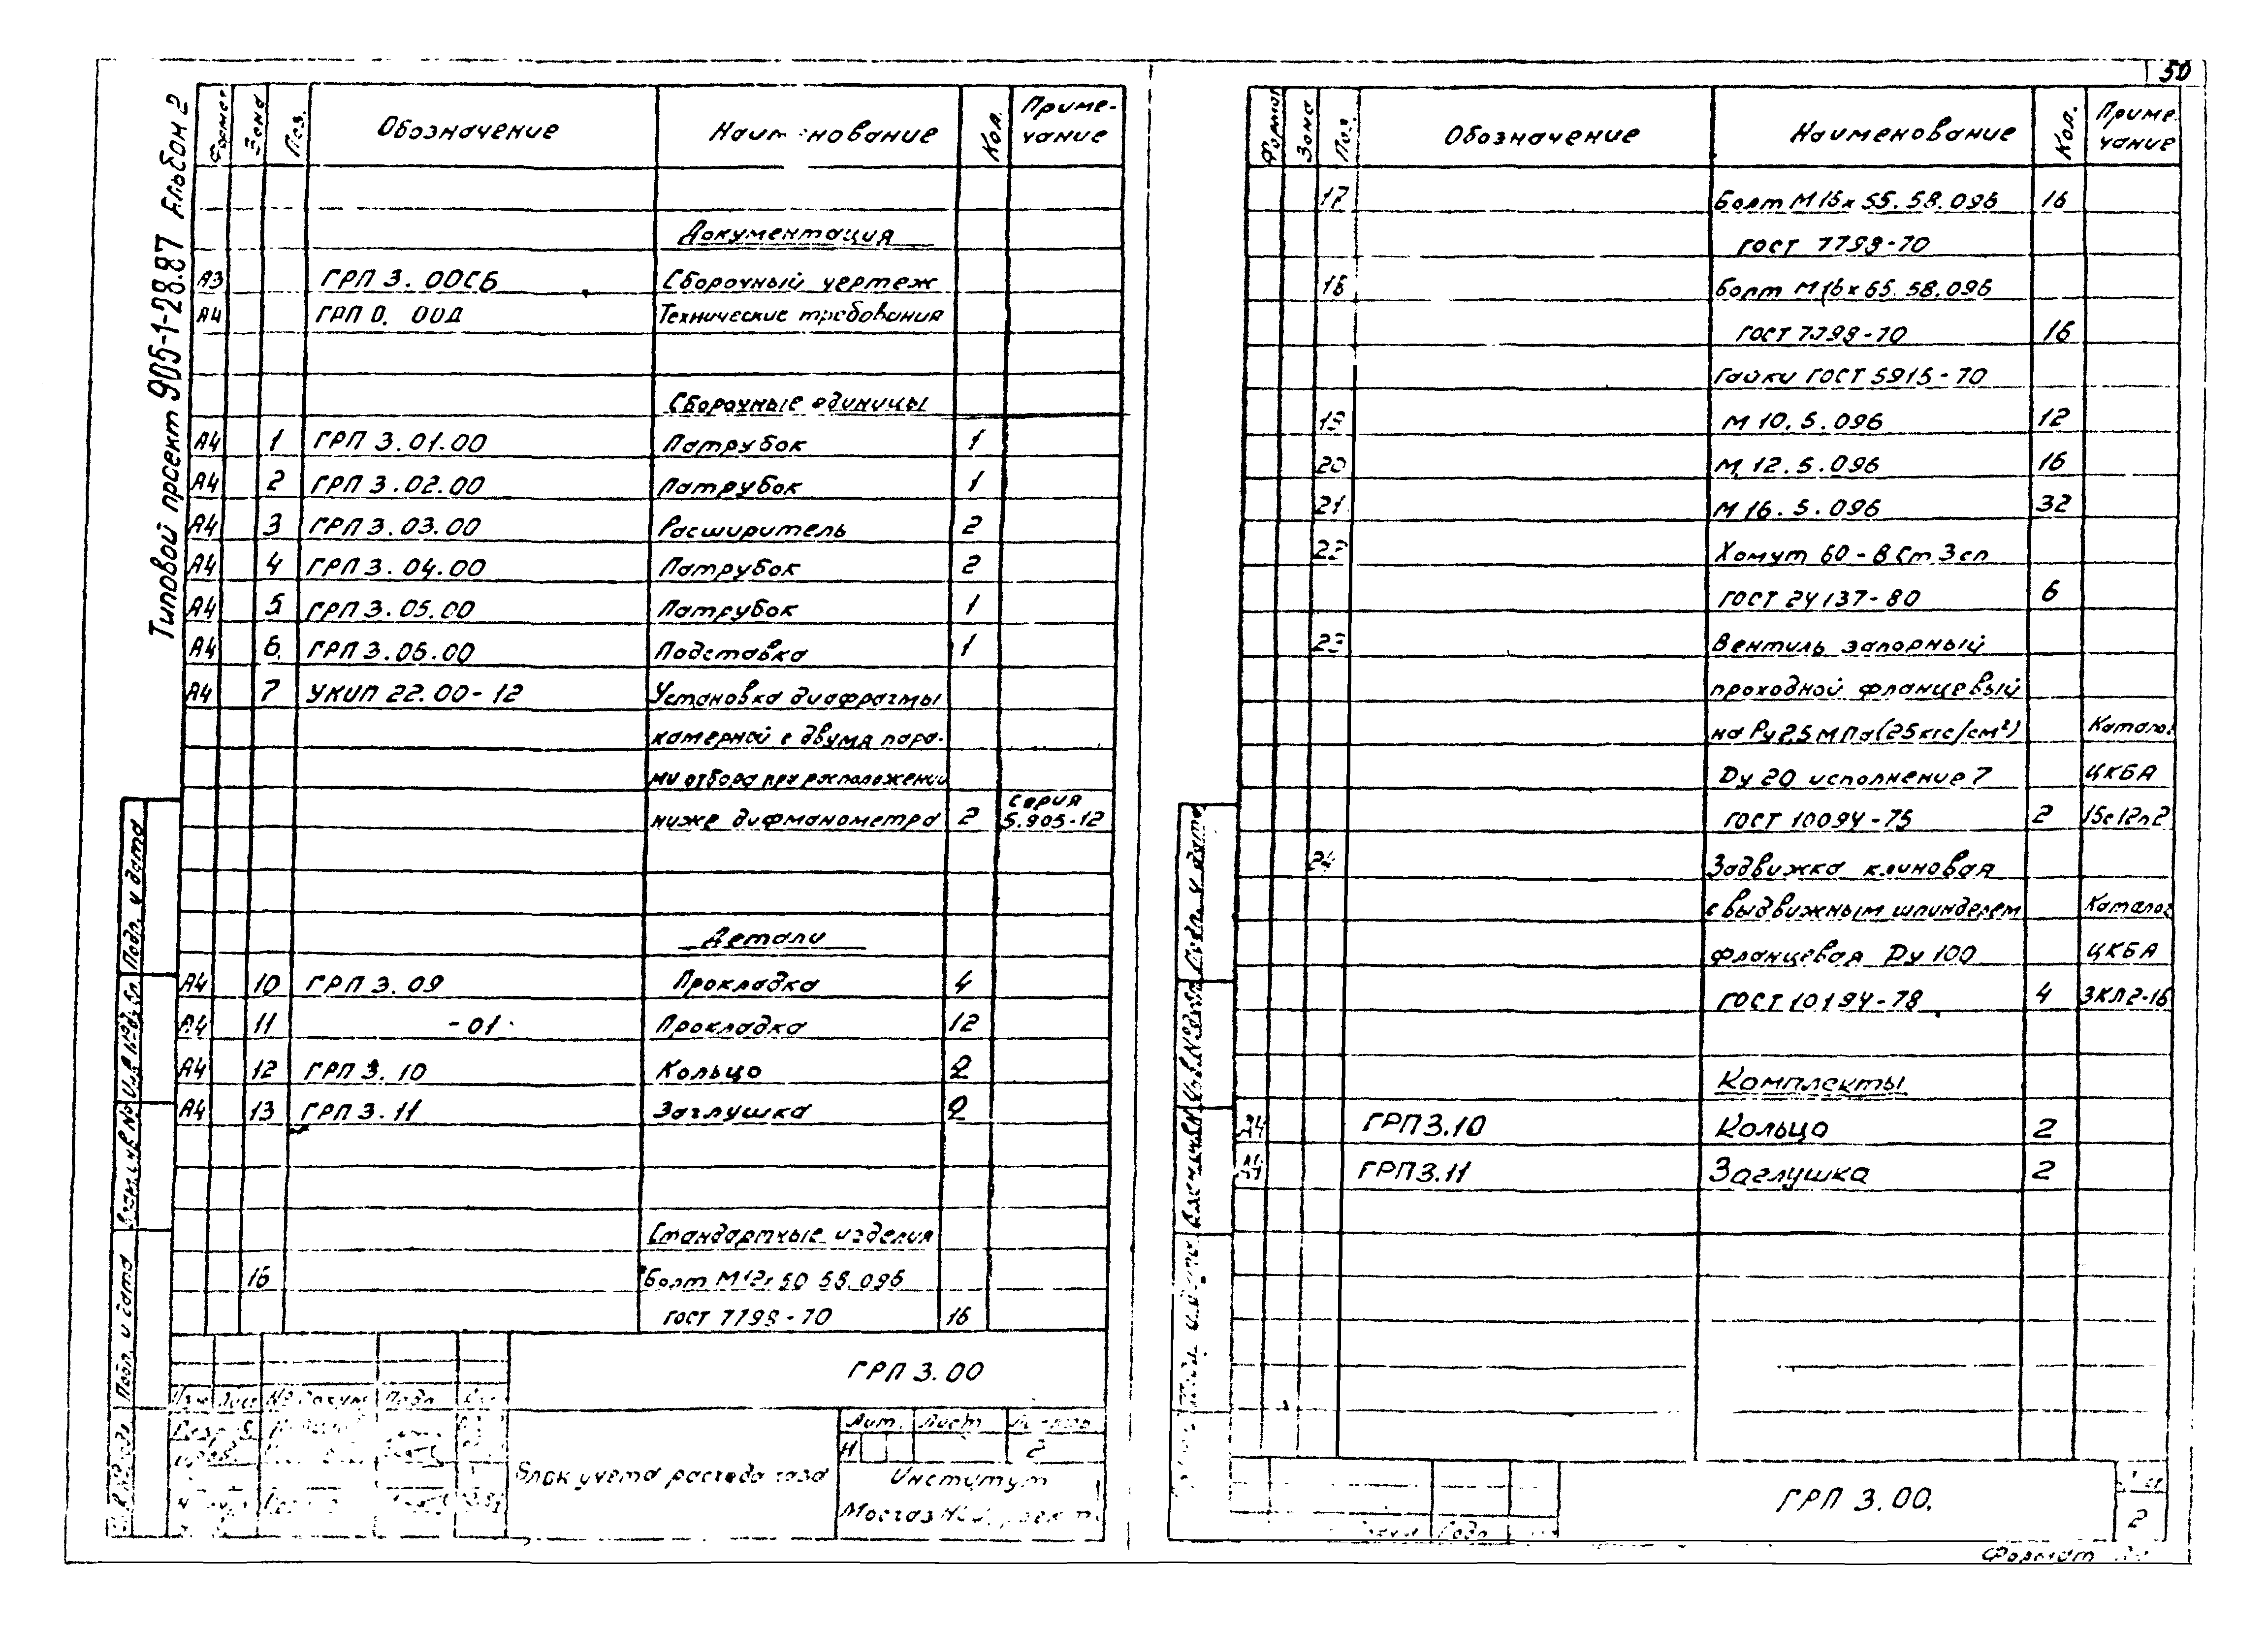 50
Типовой проект 905-1-28.87 Альбом 2
Формат Зона Поз. Обозначение Наименование Кол. Примечание
Документация
А3 ГРП 3.00СБ Сборочный чертеж
А4 ГРП 0.00Д Технические требования
Сборочные единицы
А4 1 ГРП 3.01.00 Патрубок 1
А4 2 ГРП 3.02.00 Патрубок 1
А4 3 ГРП 3.03.00 Расширитель 2
А4 4 ГРП 3.04.00 Патрубок 2
А4 5 ГРП 3.05.00 Патрубок 1
А4 6 ГРП 3.06.00 Подставка 1
А4 7 УКИП 22.00-12 Установка диафрагмы
камерной с двумя пара-
ми отбора при расположении
ниже дифманометра 2 серия 5.905-12
Детали
А4 10 ГРП 3.09 Прокладка 4
А4 11 -01 Прокладка 12
А4 12 ГРП 3.10 Кольцо 2
А4 13 ГРП 3.11 Заглушка 2
Стандартные изделия
16 Болт М12х50 58.096
ГОСТ 7798-70 16
ГРП 3.00
Изм Лист № докум Подп.
Лит. Лист Листов
Н 2
Блок учета расхода газа
Институт
Подп. и дата
Подп. и дата
Формат Зона Поз. Обозначение Наименование Кол. Примечание
17 Болт М16х55.58.096 16
ГОСТ 7798-70
18 Болт М16х65.58.096
ГОСТ 7798-70 16
Гайки ГОСТ 5915-70
19 М 10.5.096 12
20 М 12.5.096 16
21 М 16.5.096 32
22 Хомут 60-ВСт 3сп
ГОСТ 24137-80 6
23 Вентиль запорный
проходной фланцевый
на Ру 2,5 МПа (25кгс/см²) Каталог
Dу 20 исполнение 7 ЦКБА
ГОСТ 10094-75 2
24 Задвижка клиновая
с выдвижным шпинделем Каталог
фланцевая Dу 100 ЦКБА
ГОСТ 10194-78 4 ЗКЛ2-16
Комплекты
А4 ГРП3.10 Кольцо 2
А4 ГРП3.11 Заглушка 2
ГРП 3.00.
2
Формат